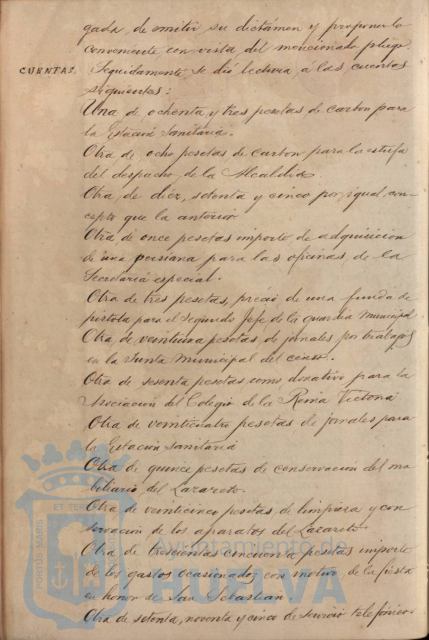 gada, de emitir su dictámen y proponer lo
conveniente con vista del mencionado pliego.
CUENTAS.
Seguidamente se dió lectura á las cuentas
siguientes:
Una de ochenta y tres pesetas de carbon para
la Estación Sanitaria.
Otra de ocho pesetas de carbon para la estufa
del despacho de la Alcaldia.
Otra de diez, setenta y cinco por igual con-
cepto que la anterior
Otra de once pesetas importe de adquisicion
de una persiana para las oficinas de la
Secretaría especial.
Otra de tres pesetas, precio de una funda de
pistola para el Segundo Jefe de la guardia Municipal
Otra de veintiuna pesetas de jornales por trabajos
en la Junta Municipal del censo.
Otra de sesenta pesetas como donativo para la
Asociación del Colegio de la Reina Victoria
Otra de veinticuatro pesetas de jornales para
la Estación Sanitaria
Otra de quince pesetas de conservación del mo-
biliario del Lazareto.
Otra de veinticinco pesetas de limpieza y con-
servación de los aparatos del Lazareto.
Otra de trescientas cincuenta pesetas importe
de los gastos ocasionados con motivo de la fiesta
en honor de San Sebastian.
Otra de setenta, noventa y cinco de servicio telefónico
PORTUS MARIS
ET TER
Ayuntamiento de
HUELVA